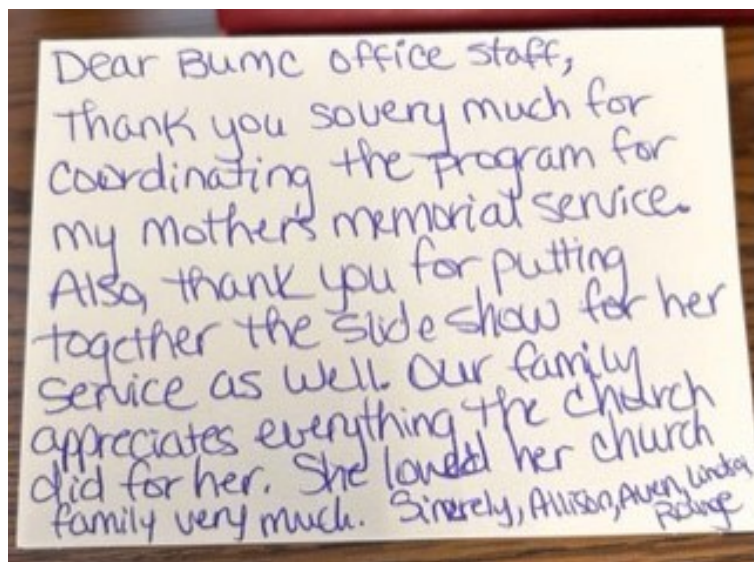 Dear Bumc office staff,
Thank you so very much for
coordinating the program for
my mother's memorial service.
Also, thank you for putting
together the slide show for her
service as well. Our family
appreciates everything the church
did for her. She loved her church
family very much. Sincerely, Allison, Aven,